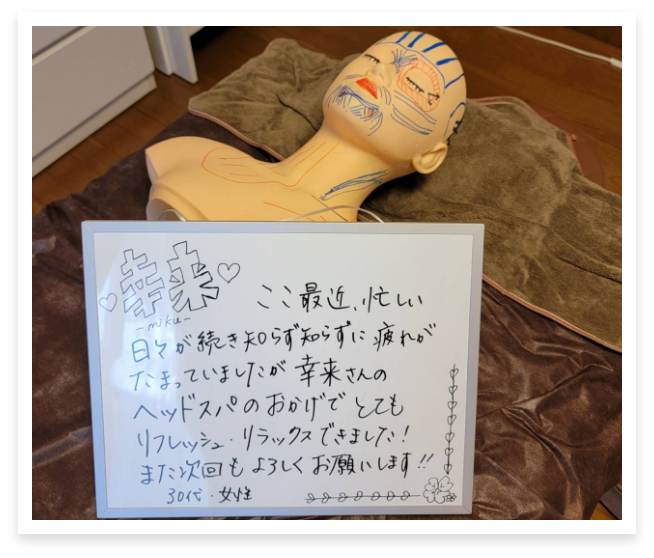 幸来
-miku-
ここ最近、忙しい
日々が続き知らず知らずに疲れが
たまっていましたが幸来さんの
ヘッドスパのおかげでとても
リフレッシュ・リラックスできました!
また次回もよろしくお願いします!!
30代・女性